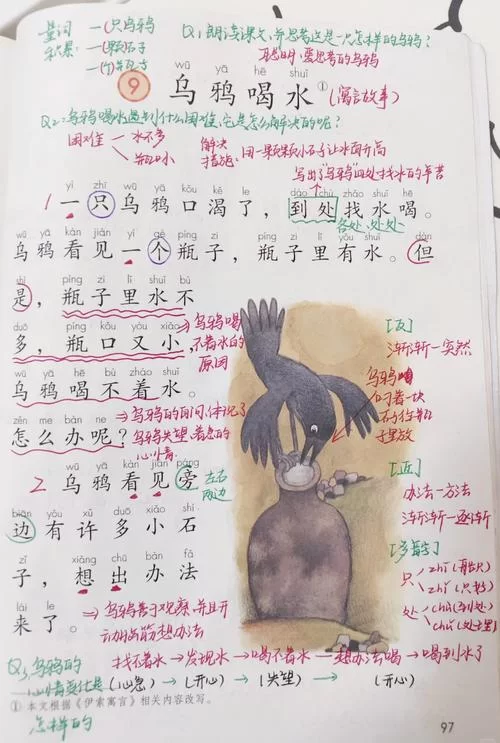 量词 —(只)乌鸦
积累: —(颗)石子
—(个)瓶子
Q1:朗读课文,并思考这是一只怎样的乌鸦?
聪明、爱思考的乌鸦
wū yā hē shuǐ
9 乌鸦喝水① (寓言故事)
Q2:乌鸦喝水遇到什么困难,它是怎么解决的呢?
困难 水不多
瓶口小
解决措施: 用一颗颗小石子让水面升高
写出了乌鸦四处找水的辛苦
yì zhī wū yā kǒu kě le dào chù zhǎo shuǐ hē
1 一只乌鸦口渴了,到处找水喝。
各处、处处
wū yā kàn jiàn yí gè píng zi píng zi lǐ yǒu shuǐ dàn
乌鸦看见一个瓶子,瓶子里有水。但
shì píng zi lǐ shuǐ bù
是,瓶子里水不
duō píng kǒu yòu xiǎo
多,瓶口又小,
⇒乌鸦喝不着水的原因
wū yā hē bù zháo shuǐ
乌鸦喝不着水。
zěn me bàn ne
怎么办呢?
⇒乌鸦的自问,体现了乌鸦失望、着急的心情。
wū yā kàn jiàn páng
2 乌鸦看见旁
左右两边
biān yǒu xǔ duō xiǎo shí
边有许多小石
zǐ xiǎng chū bàn fǎ
子,想出办法
lái le
来了。
⇒乌鸦善于观察,并且开动脑筋想办法
[反]
渐渐—突然
乌鸦叼着一块石子往瓶子里放
[近]
办法—方法
渐渐—逐渐
[多音字]
只 zhǐ(只)
zhī(只)
处 chù(到处)
chǔ(处)
Q3:乌鸦的心情变化是怎样的
找不着水→发现水→喝不着水→想办法喝→喝到水了
(心急)→(开心)→(失望)→(开心)
① 本文根据《伊索寓言》相关内容改写。
97